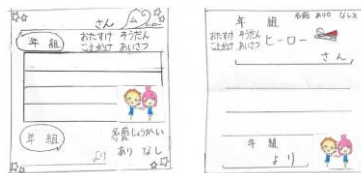 さん
年 組
おたすけ そうだん
こえかけ あいさつ
年 組
名前しょうかい
あり なし
より
年 組
名前 あり なし
おたすけ そうだん
こえかけ あいさつ
ヒーロー
さん
年 組
より